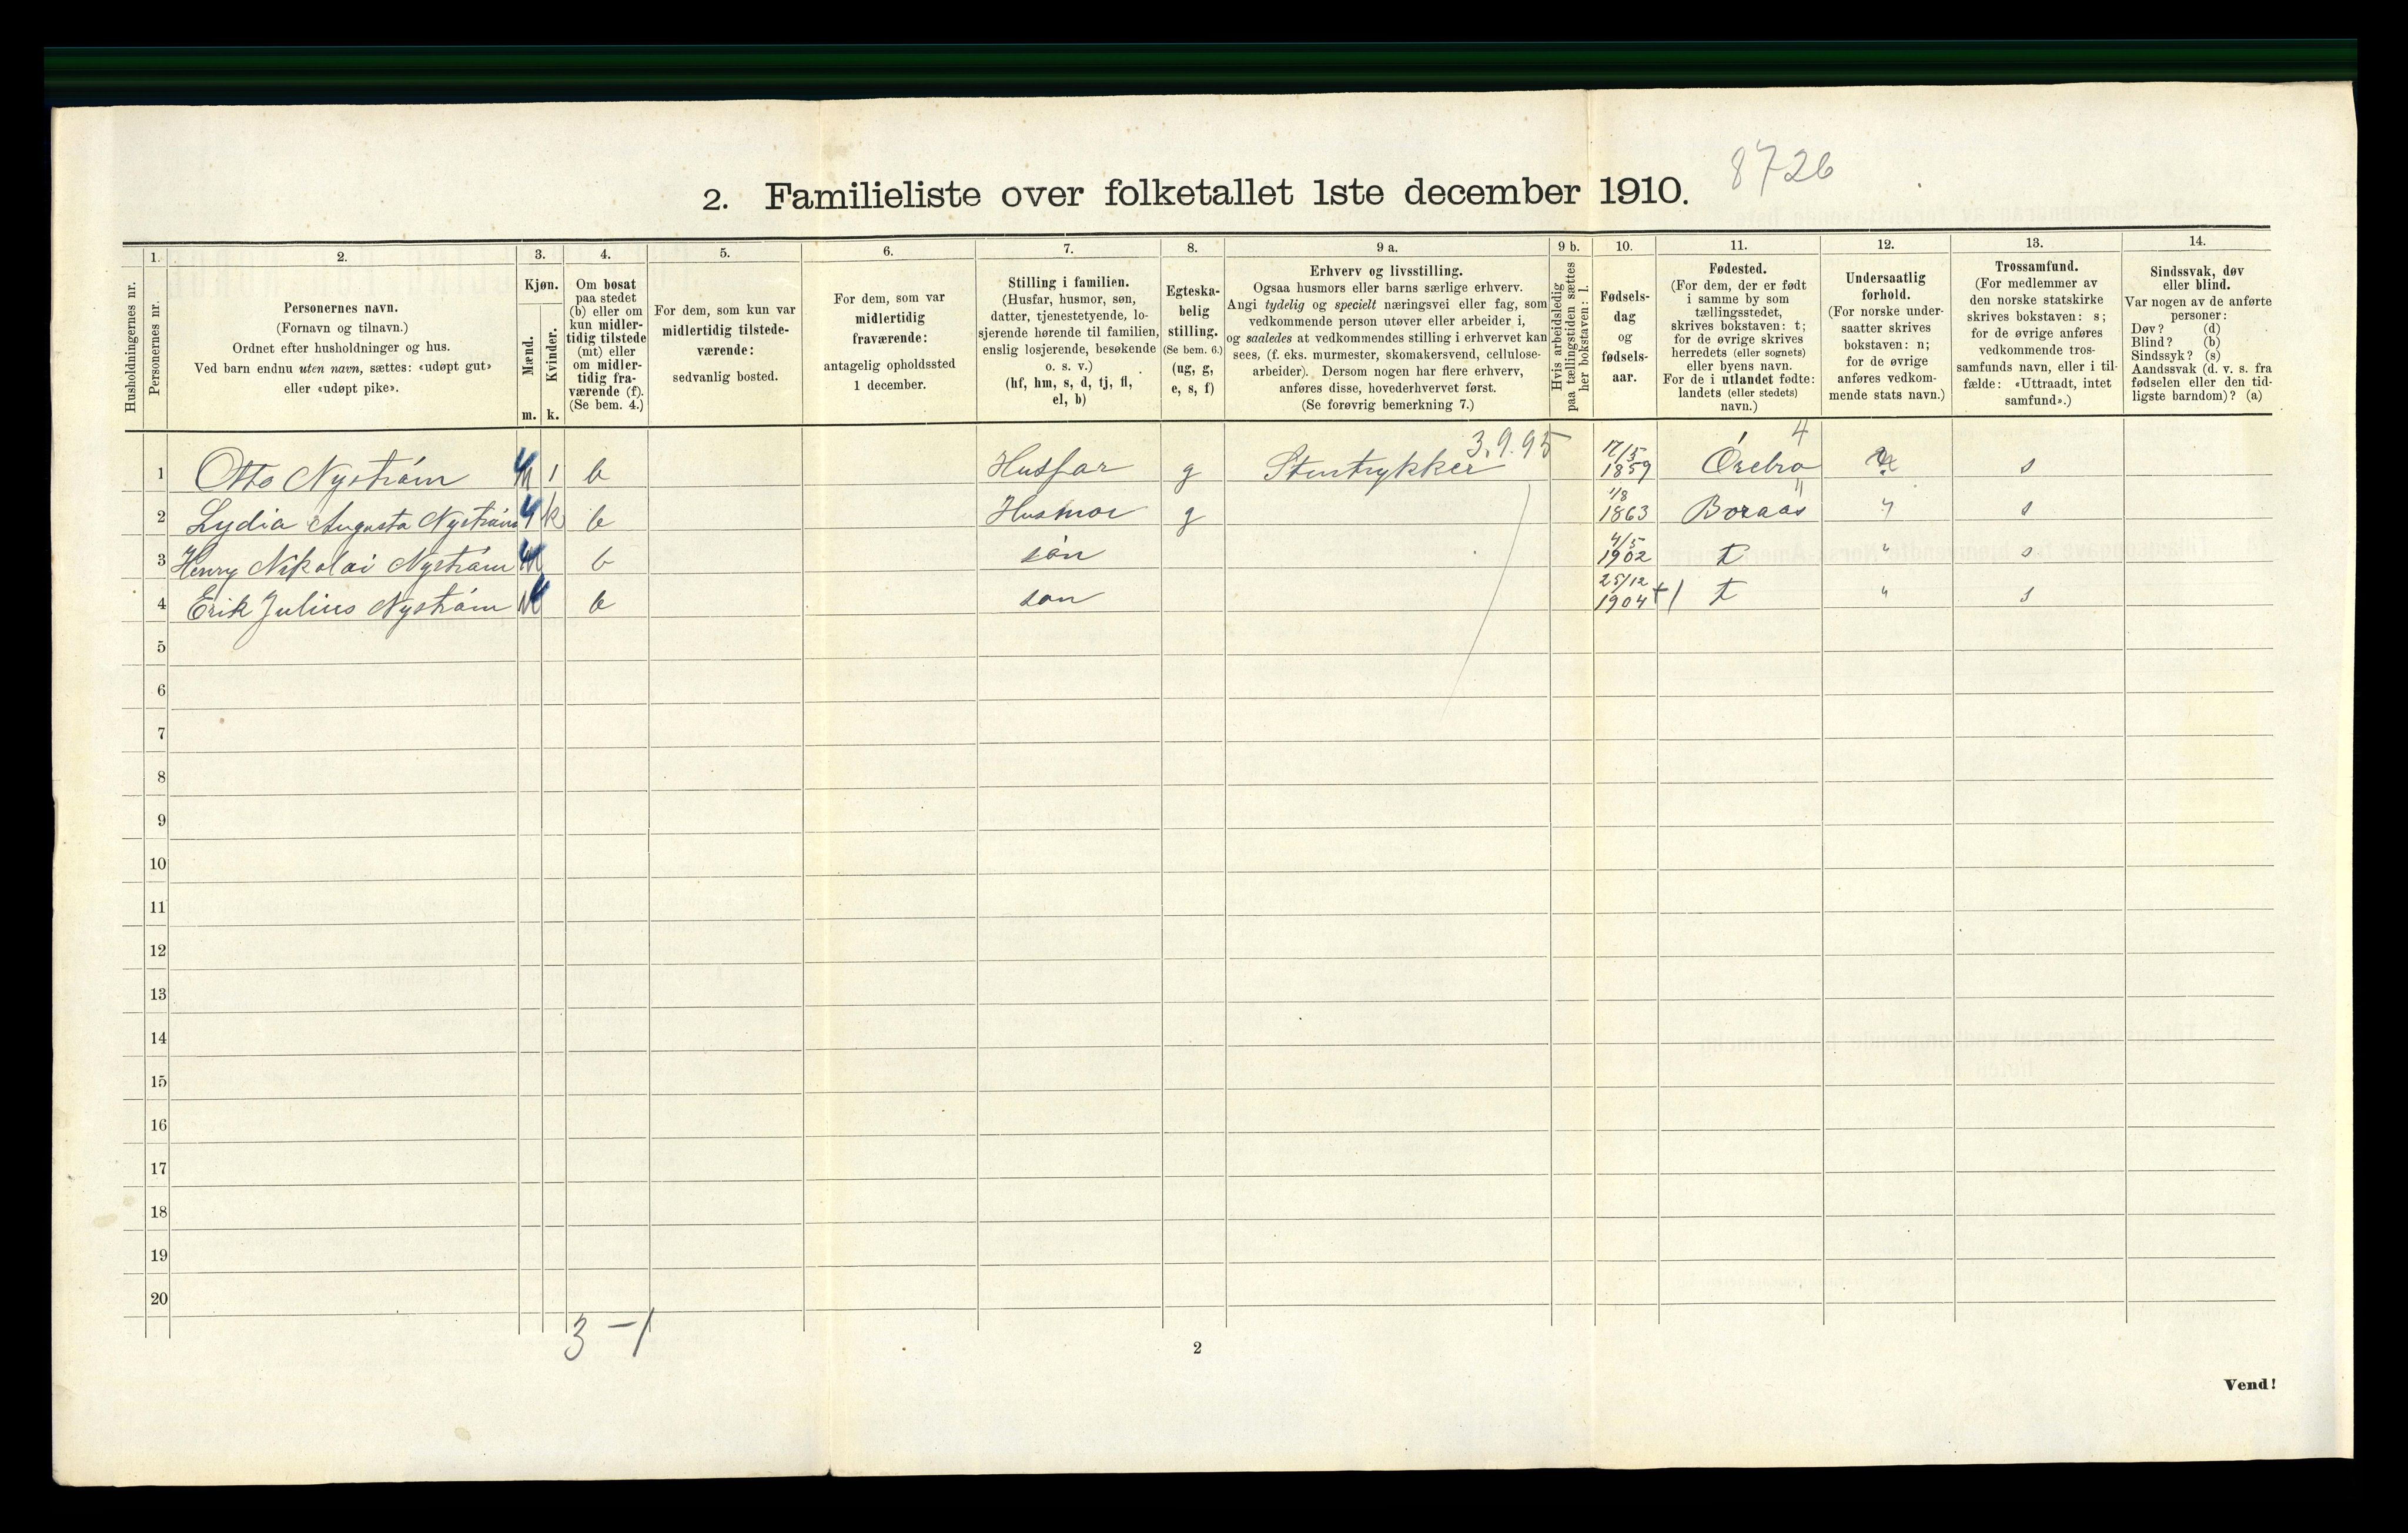 8726
2. Familieliste over folketallet 1ste december 1910.
Husholdningernes nr.
1.
Personernes nr.
2.
Personernes navn.
(Fornavn og tilnavn.)
Ordnet efter husholdninger og hus.
Ved barn endnu uten navn, sættes: «udøpt gut»
eller «udøpt pike».
3.
Kjøn.
Mænd.
Kvinder.
m. k.
4.
Om bosat
paa stedet
(b) eller om
kun midler-
tidig tilstede
(mt) eller
om midler-
tidig fra-
værende (f).
(Se bem. 4.)
5.
For dem, som kun var
midlertidig tilstede-
værende:
sedvanlig bosted.
6.
For dem, som var
midlertidig
fraværende:
antagelig opholdssted
1 december.
7.
Stilling i familien.
(Husfar, husmor, søn,
datter, tjenestetyende, lo-
sjerende hørende til familien,
enslig losjerende, besøkende
o. s. v.)
(hf, hm, s, d, tj, fl,
el, b)
8.
Egteska-
belig
stilling.
(Se bem. 6.)
(ug, g,
e, s, f)
9 a.
Erhverv og livsstilling.
Ogsaa husmors eller barns særlige erhverv.
Angi tydelig og specielt næringsvei eller fag, som
vedkommende person utøver eller arbeider i,
og saaledes at vedkommendes stilling i erhvervet kan
sees, (f. eks. murmester, skomakersvend, cellulose-
arbeider). Dersom nogen har flere erhverv,
anføres disse, hovederhvervet først.
(Se forøvrig bemerkning 7.)
9 b.
Hvis arbeidsledig
paa tællingstiden sættes
her bokstaven: l.
10.
Fødsels-
dag
og
fødsels-
aar.
11.
Fødested.
(For dem, der er født
i samme by som
tællingsstedet,
skrives bokstaven: t;
for de øvrige skrives
herredets (eller sognets)
eller byens navn.
For de i utlandet fødte:
landets (eller stedets)
navn.)
12.
Undersaatlig
forhold.
(For norske under-
saatter skrives
bokstaven: n;
for de øvrige
anføres vedkom-
mende stats navn.)
13.
Trossamfund.
(For medlemmer av
den norske statskirke
skrives bokstaven: s;
for de øvrige anføres
vedkommende tros-
samfunds navn, eller i til-
fælde: «Uttraadt, intet
samfund».)
14.
Sindssvak, døv
eller blind.
Var nogen av de anførte
personer:
Døv? (d)
Blind? (b)
Sindssyk? (s)
Aandssvak (d. v. s. fra
fødselen eller den tid-
ligste barndom)? (a)
3.9.95 4
1 Otto Nyström M 1 b Husfar g Stentrykker 17/5 1859 Örebro s
2 Lydia Augusta Nyström k b Husmor g 1/8 1863 Boraås " " s
3 Henry Nikolai Nyström M b søn 4/5 1902 t " s
4 Erik Julius Nyström M b søn 25/12 1904 t " s
5
6
7
8
9
10
11
12
13
14
15
16
17
18
19
20
3 - 1
2
Vend!